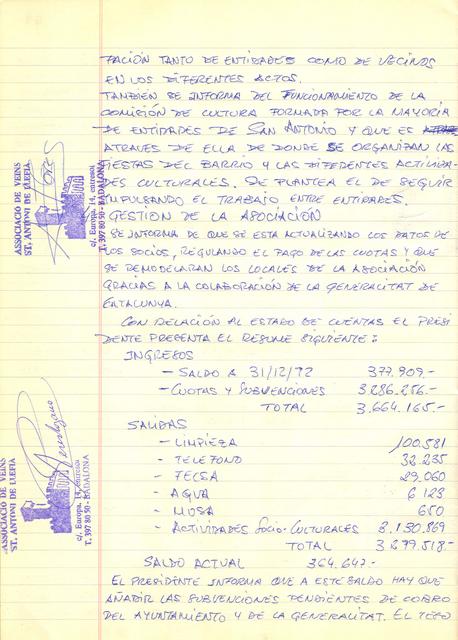 PACIÓN TANTO DE ENTIDADES COMO DE VECINOS
EN LOS DIFERENTES ACTOS.
TAMBIEN SE INFORMA DEL FUNCIONAMIENTO DE LA
COMISIÓN DE CULTURA FORMADA POR LA MAYORIA
DE ENTIDADES DE SAN ANTONIO Y QUE ES
ATRAVES DE ELLA DE DONDE SE ORGANIZAN LAS
FIESTAS DEL BARRIO Y LAS DIFERENTES ACTIVIDA-
DES CULTURALES. SE PLANTEA EL DE SEGUIR
IMPULSANDO EL TRABAJO ENTRE ENTIDADES.
GESTION DE LA ASOCIACIÓN
SE INFORMA DE QUE SE ESTA ACTUALIZANDO LOS DATOS DE
LOS SOCIOS, REGULANDO EL PAGO DE LAS CUOTAS Y QUE
SE REMODELARAN LOS LOCALES DE LA ASOCIACIÓN
GRACIAS A LA COLABORACIÓN DE LA GENERALITAT DE
CATALUNYA.
CON RELACIÓN AL ESTADO DE CUENTAS EL PRESI
DENTE PRESENTA EL RESUME SIGUIENTE:
INGRESOS
- SALDO A 31/12/92 377.909.-
- CUOTAS Y SUBVENCIONES 3.286.256.-
TOTAL 3.664.165.-
SALIDAS
- LIMPIEZA 100.581
- TELEFONO 32.235
- FECSA 29.060
- AGUA 6.123
- MUSA 650
- ACTIVIDADES SOCIO-CULTURALES 3.130.869
TOTAL 3.299.518.-
SALDO ACTUAL 364.647.-
EL PRESIDENTE INFORMA QUE A ESTE SALDO HAY QUE
AÑADIR LAS SUBVENCIONES PENDIENTES DE COBRO
DEL AYUNTAMIENTO Y DE LA GENERALITAT. EL TESO
ASSOCIACIÓ DE VEINS
ST. ANTONI DE LLEFIA
c/. Europa, 14, entresol
T. 397 80 50 - BADALONA
ASSOCIACIÓ DE VEINS
ST. ANTONI DE LLEFIA
c/. Europa, 14, entresol
T. 397 80 50 - BADALONA